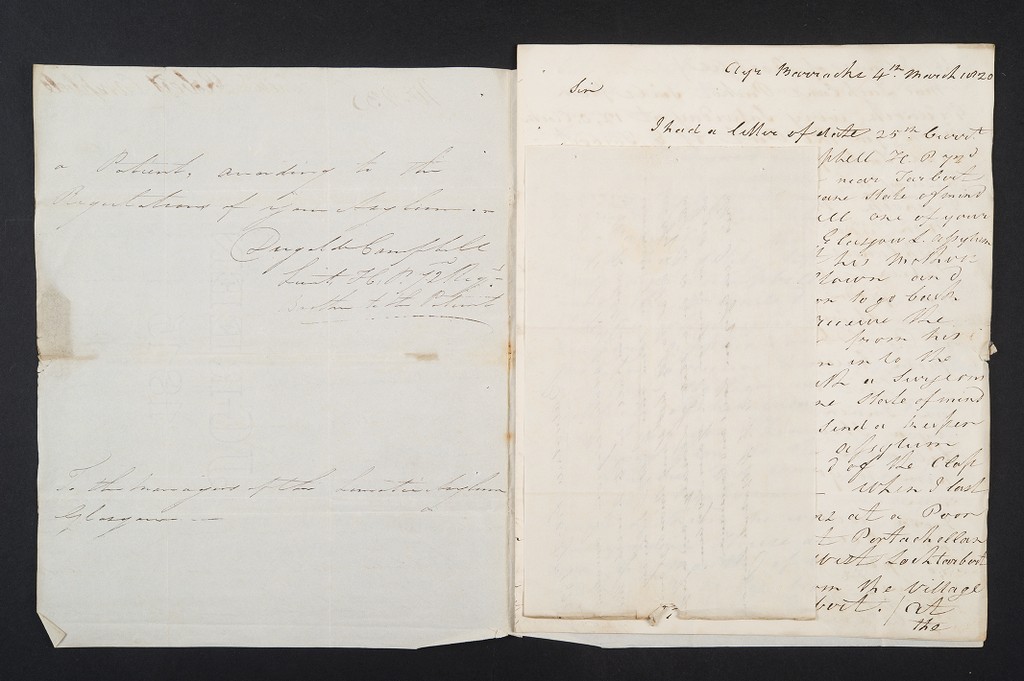 a Patient, according to the
Regulations of your Asylum
Dugald Campbell
Lieut H. P. 72 Regt
Brother to the Patient
To the managers of the Lunatic Asylum
Glasgow
Ayr Barracks 4th March 1820
Sir
I had a letter of date 25th Currt
pbell H P 72d
near Tarbert
ane State of mind
ell one of your
Glasgow L. assylum
his Mother
town and
on to go back
receive the
from his
n into the
a Surgeons
ne State of mind
Send a keeper
assylum
d of the Class
when I last
at a Poor
t Portachellan
West Lochtarbert
om the village
bert. / at
the